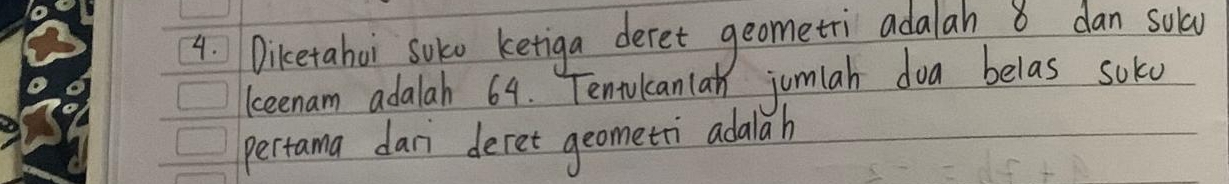 4. Diketahui suku ketiga deret geometri adalah 8 dan suku
keenam adalah 64. Tentukanlah jumlah dua belas suku
pertama dari deret geometri adalah